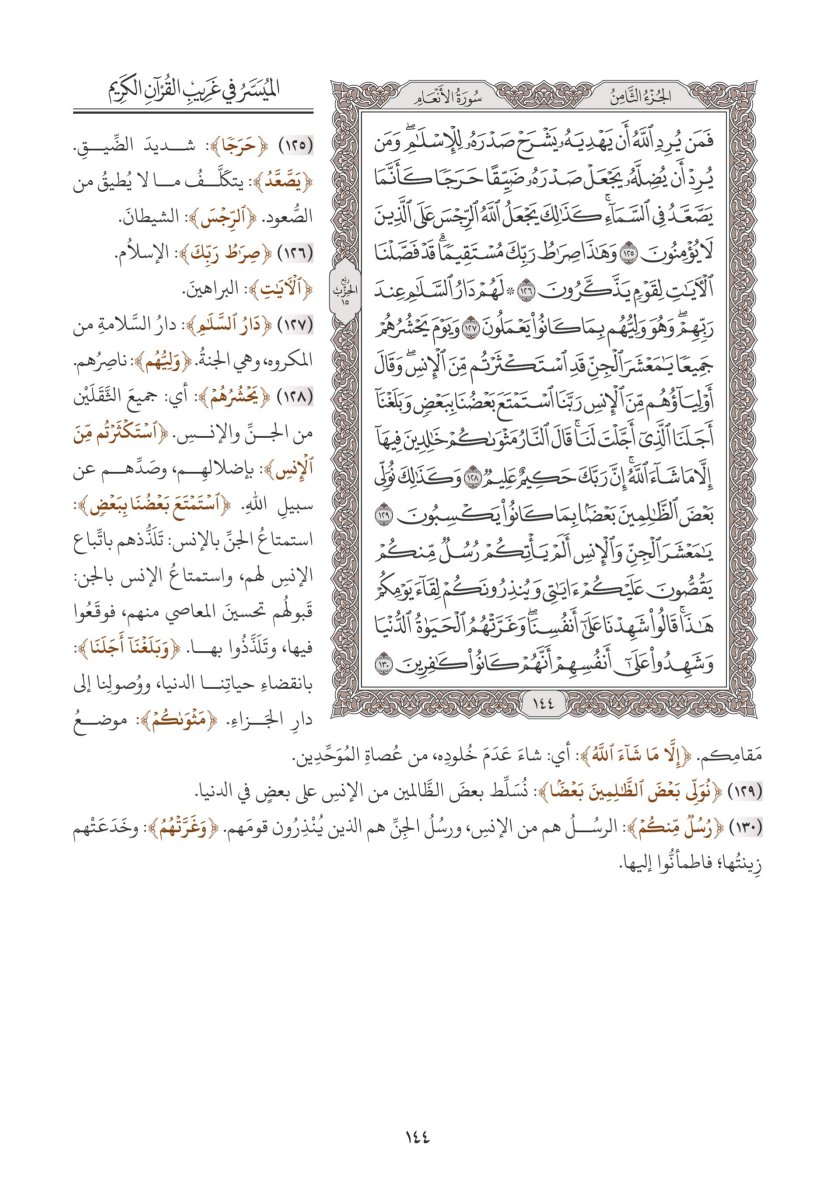 الميسر في غريب القرآن الكريم
الجزء الثامن
سورة الأنعام
فَمَن يُرِدِ ٱللَّهُ أَن يَهْدِيَهُۥ يَشْرَحْ صَدْرَهُۥ لِلْإِسْلَٰمِۖ وَمَن
يُرِدْ أَن يُضِلَّهُۥ يَجْعَلْ صَدْرَهُۥ ضَيِّقًا حَرَجًا كَأَنَّمَا
يَصَّعَّدُ فِي ٱلسَّمَآءِۚ كَذَٰلِكَ يَجْعَلُ ٱللَّهُ ٱلرِّجْسَ عَلَى ٱلَّذِينَ
لَا يُؤْمِنُونَ ١٢٥ وَهَٰذَا صِرَٰطُ رَبِّكَ مُسْتَقِيمًاۗ قَدْ فَصَّلْنَا
ٱلْأٓيَٰتِ لِقَوْمٍ يَذَّكَّرُونَ ١٢٦ ۞ لَهُمْ دَارُ ٱلسَّلَٰمِ عِندَ
رَبِّهِمْۖ وَهُوَ وَلِيُّهُم بِمَا كَانُوا۟ يَعْمَلُونَ ١٢٧ وَيَوْمَ يَحْشُرُهُمْ
جَمِيعًا يَٰمَعْشَرَ ٱلْجِنِّ قَدِ ٱسْتَكْثَرْتُم مِّنَ ٱلْإِنسِۖ وَقَالَ
أَوْلِيَآؤُهُم مِّنَ ٱلْإِنسِ رَبَّنَا ٱسْتَمْتَعَ بَعْضُنَا بِبَعْضٍ وَبَلَغْنَآ
أَجَلَنَا ٱلَّذِيٓ أَجَّلْتَ لَنَاۚ قَالَ ٱلنَّارُ مَثْوَىٰكُمْ خَٰلِدِينَ فِيهَآ
إِلَّا مَا شَآءَ ٱللَّهُۗ إِنَّ رَبَّكَ حَكِيمٌ عَلِيمٌ ١٢٨ وَكَذَٰلِكَ نُوَلِّي
بَعْضَ ٱلظَّٰلِمِينَ بَعْضًۢا بِمَا كَانُوا۟ يَكْسِبُونَ ١٢٩
يَٰمَعْشَرَ ٱلْجِنِّ وَٱلْإِنسِ أَلَمْ يَأْتِكُمْ رُسُلٌ مِّنكُمْ
يَقُصُّونَ عَلَيْكُمْ ءَايَٰتِي وَيُنذِرُونَكُمْ لِقَآءَ يَوْمِكُمْ
هَٰذَاۚ قَالُوا۟ شَهِدْنَا عَلَىٰٓ أَنفُسِنَاۖ وَغَرَّتْهُمُ ٱلْحَيَوٰةُ ٱلدُّنْيَا
وَشَهِدُوا۟ عَلَىٰٓ أَنفُسِهِمْ أَنَّهُمْ كَانُوا۟ كَٰفِرِينَ ١٣٠
ربع
الحزب
١٥
١٤٤
(١٢٥) ﴿حَرَجًا﴾: شديدَ الضِّيقِ.
﴿يَصَّعَّدُ﴾: يتكلَّفُ ما لا يُطيقُ من
الصُّعود. ﴿ٱلرِّجْسَ﴾: الشيطانَ.
(١٢٦) ﴿صِرَٰطُ رَبِّكَ﴾: الإسلامُ.
﴿ٱلْأٓيَٰتِ﴾: البراهينَ.
(١٢٧) ﴿دَارُ ٱلسَّلَٰمِ﴾: دارُ السَّلامةِ من
المكروه، وهي الجنةُ. ﴿وَلِيُّهُم﴾: ناصِرُهم.
(١٢٨) ﴿يَحْشُرُهُمْ﴾: أي: جميعَ الثَّقَلَيْن
من الجنِّ والإنسِ. ﴿ٱسْتَكْثَرْتُم مِّنَ
ٱلْإِنسِ﴾: بإضلالِهم، وصَدِّهم عن
سبيلِ اللهِ. ﴿ٱسْتَمْتَعَ بَعْضُنَا بِبَعْضٍ﴾:
استمتاعُ الجنِّ بالإنس: تَلَذُّذهم باتِّباع
الإنسِ لهم، واستمتاعُ الإنس بالجن:
قَبولُهم تحسينَ المعاصي منهم، فوقَعُوا
فيها، وتَلَذَّذُوا بها. ﴿وَبَلَغْنَآ أَجَلَنَا﴾:
بانقضاءِ حياتِنا الدنيا، ووُصولِنا إلى
دارِ الجَزاءِ. ﴿مَثْوَىٰكُمْ﴾: موضعُ
مَقامِكم. ﴿إِلَّا مَا شَآءَ ٱللَّهُ﴾: أي: شاءَ عَدَمَ خُلودِه، من عُصاةِ المُوَحِّدين.
(١٢٩) ﴿نُوَلِّي بَعْضَ ٱلظَّٰلِمِينَ بَعْضًا﴾: نُسَلِّط بعضَ الظَّالمين من الإنسِ على بعضٍ في الدنيا.
(١٣٠) ﴿رُسُلٌ مِّنكُمْ﴾: الرسلُ هم من الإنسِ، ورسلُ الجِنِّ هم الذين يُنْذِرُون قومَهم. ﴿وَغَرَّتْهُمُ﴾: وخَدَعَتْهم
زِينتُها؛ فاطمأنُّوا إليها.
١٤٤